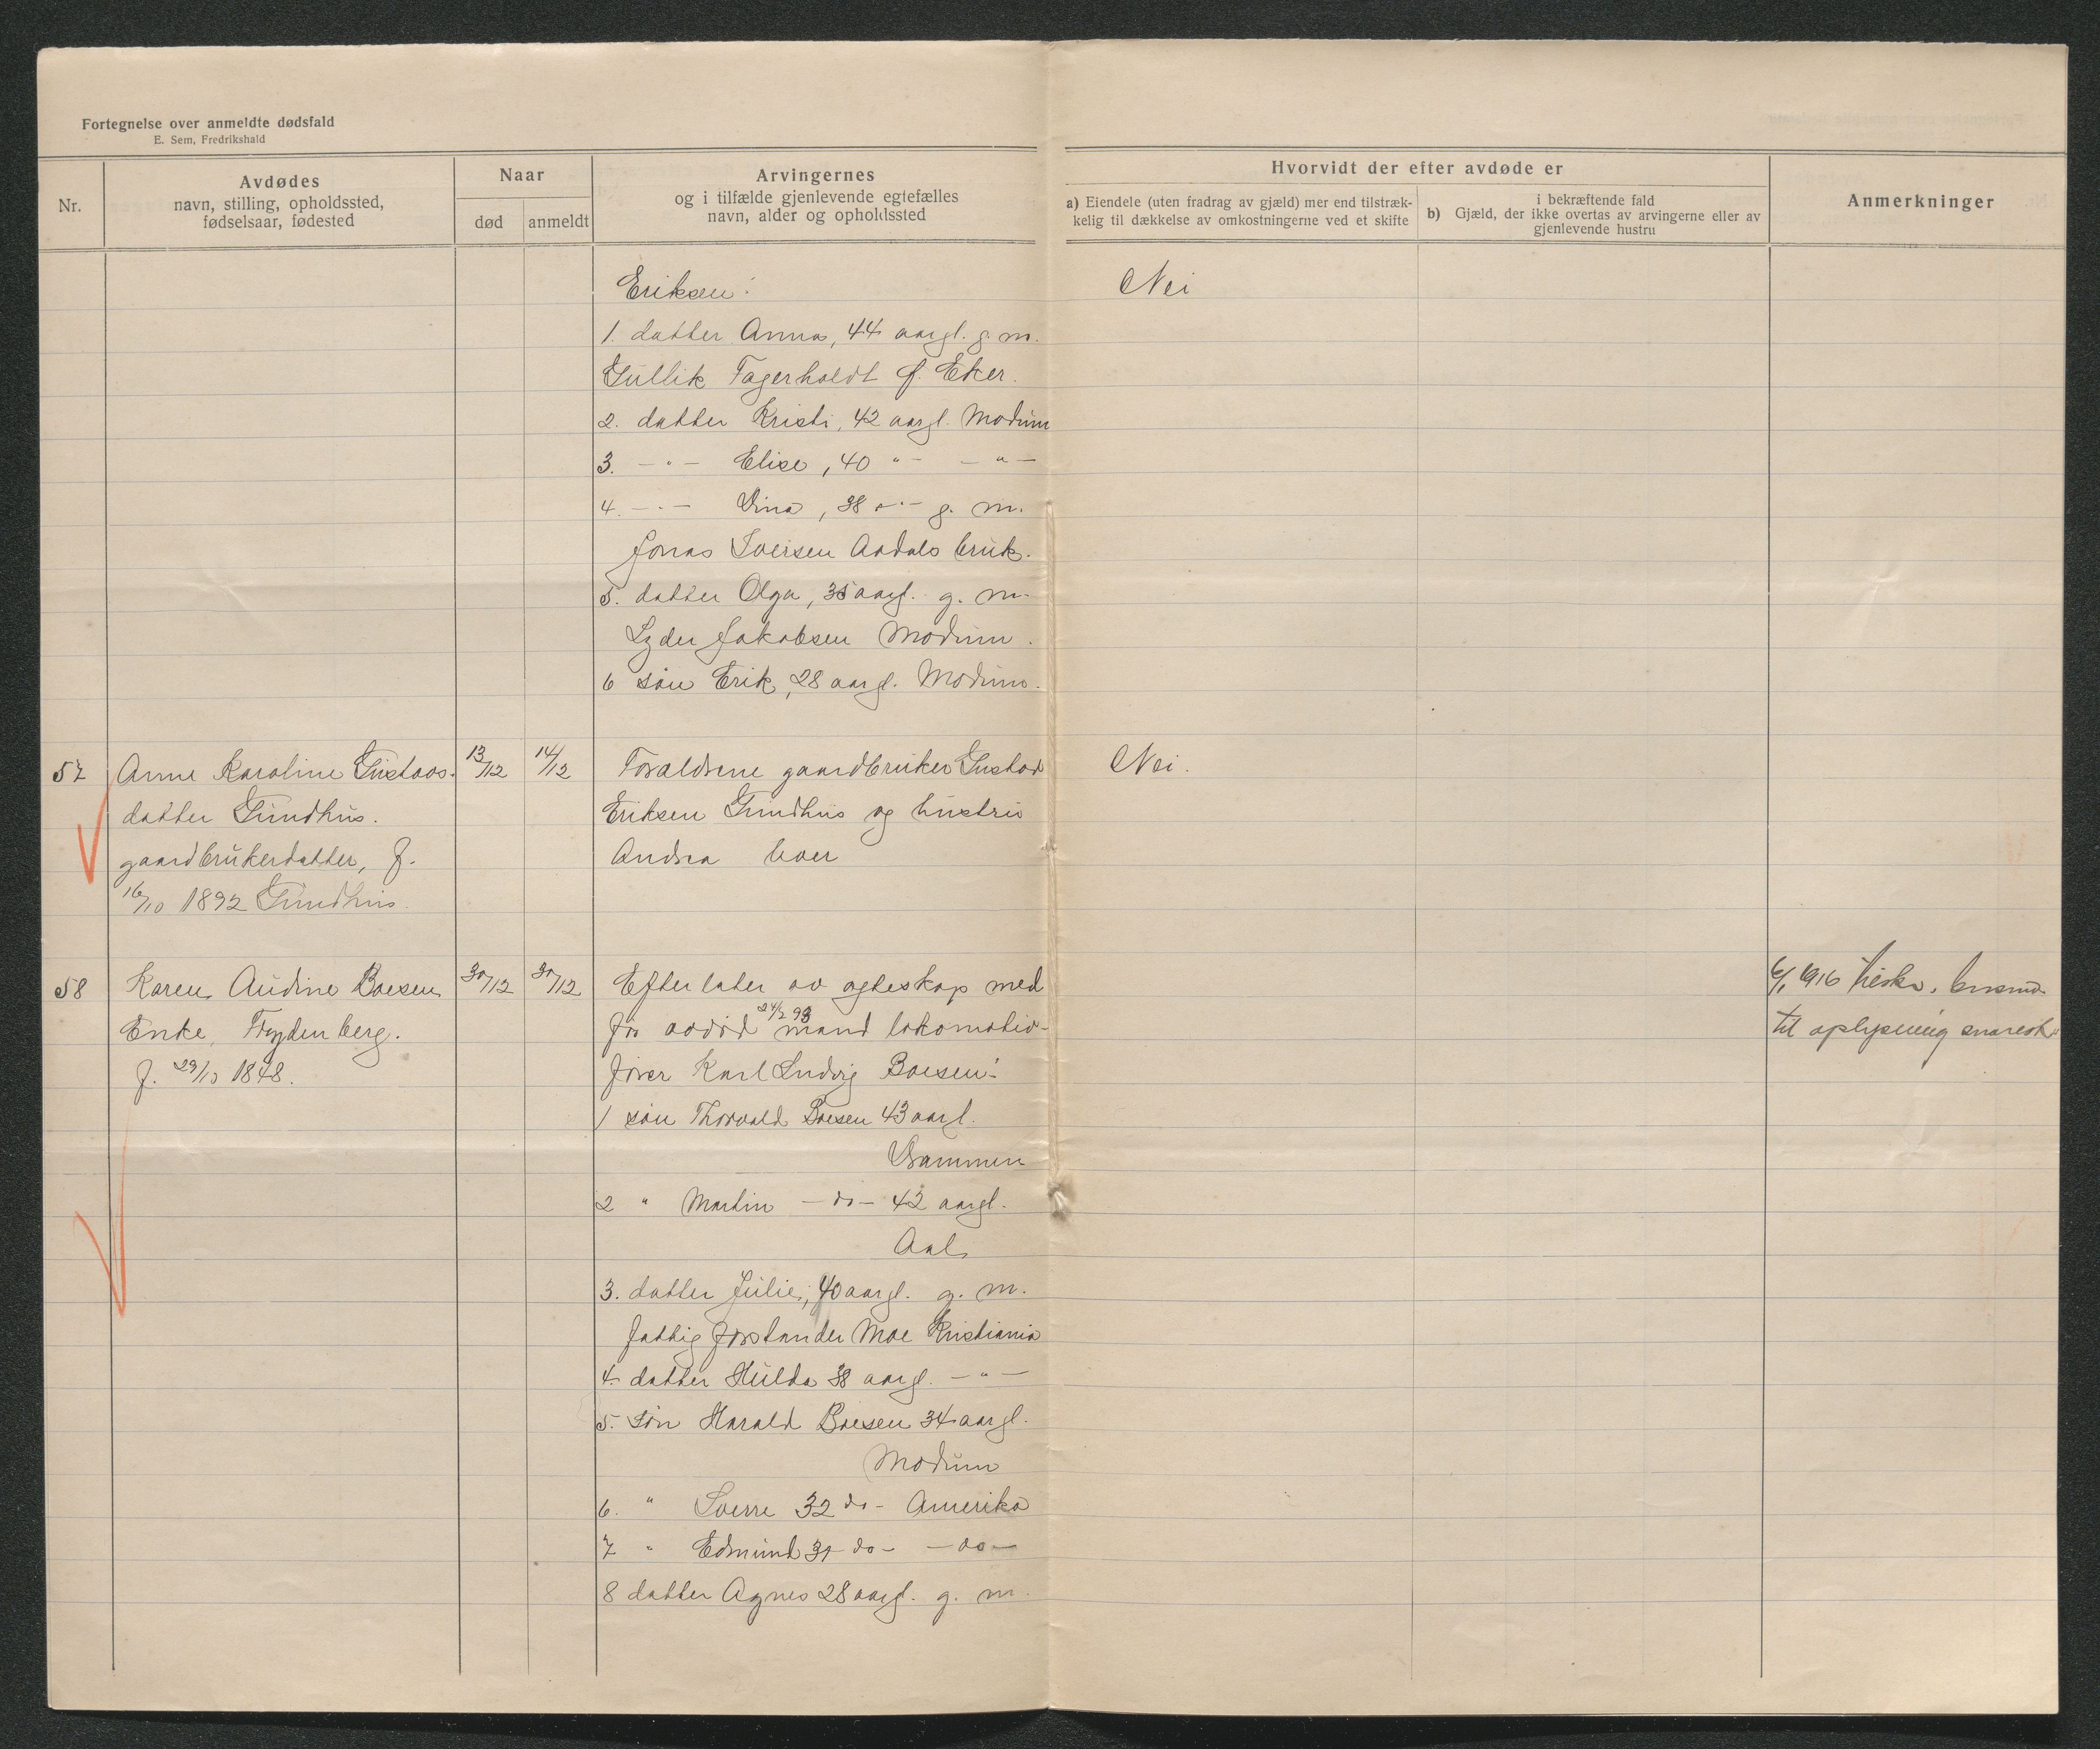 Fortegnelse over anmeldte dødsfald
E. Sem, Fredrikshald
Nr.
Avdødes
navn, stilling, opholdssted,
fødselsaar, fødested
Naar
død
anmeldt
Arvingernes
og i tilfælde gjenlevende egtefælles
navn, alder og opholdssted
Hvorvidt der efter avdøde er
a) Eiendele (uten fradrag av gjæld) mer end tilstræk-
kelig til dækkelse av omkostningerne ved et skifte
i bekræftende fald
b) Gjæld, der ikke overtas av arvingerne eller av
gjenlevende hustru
Anmerkninger
Eriksen: Nei
1. datter Anna, 44 aargl. g. m.
Gullik Fagerholdt Ø. Eker.
2. datter Kristi, 42 aargl. Modum
3. -"- Elise, 40 "- -"-
4. -"- Dina, 38 -"- g. m.
Jonas Iversen Aadals bruk.
5. datter Olga, 35 aargl. g. m.
Lyder Jakobsen Modum.
6 søn Erik, 28 aargl. Modum.
57 Anne Karoline Gustavs- 13/12 14/12 Forældrene gaardbruker Gustav Nei.
datter Gundhus. Eriksen Gundhus og hustru
gaardbrukerdatter, f. Andrea hver
16/10 1892 Gundhus.
58 Karen Audine Boesen 30/12 30/12 Efterlater av egteskap med 6/1 1916 tilskr. lensmd.
Enke, Frydenberg. før avdød 24/2 93 mand lokomotiv- til oplysning snarest
f. 29/10 1848. fører Karl Ludvig Boesen:
1 søn Thorvald Boesen 43 aargl.
Drammen
2 " Martin -do- 42 aargl.
Aal
3. datter Julie, 40 aargl. g. m.
fattigforstander Moe Kristiania
4. datter Hulda 38 aargl. -"-
5. søn Harald Boesen 34 aargl.
Modum
6. " Sverre 32 do- Amerika
7 " Edmund 30 do- -do-
8 datter Agnes 28 aargl. g. m.